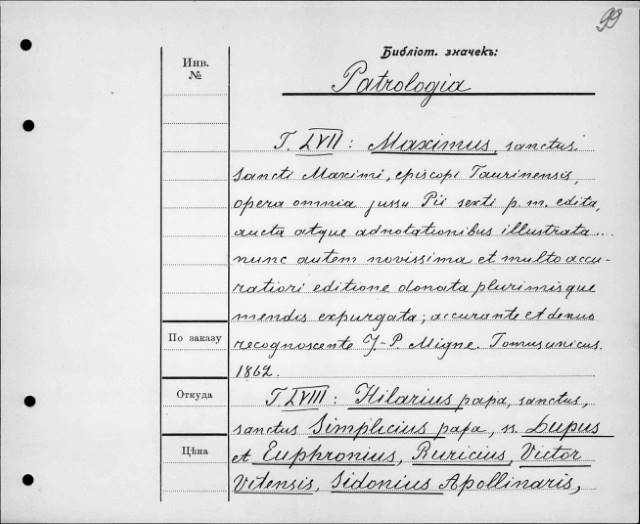 99
Библіот. значекъ:
Инв.
№
Patrologia
T. LVII: Maximus, sanctus.
Sancti Maximi, episcopi Taurinensis,
opera omnia jussu Pii sexti p. m. edita,
aucta atque adnotationibus illustrata...
nunc autem novissima et multo accu-
ratiori editione donata plurimisque
mendis expurgata; accurante et denuo
По заказу
recognoscente J.-P. Migne. Tomus unicus.
1862.
Откуда
T. LVIII: Hilarius papa, sanctus,
sanctus Simplicius papa, ss. Lupus
Цѣна
et Euphronius, Ruricius, Victor
Vitensis, Sidonius Apollinaris,